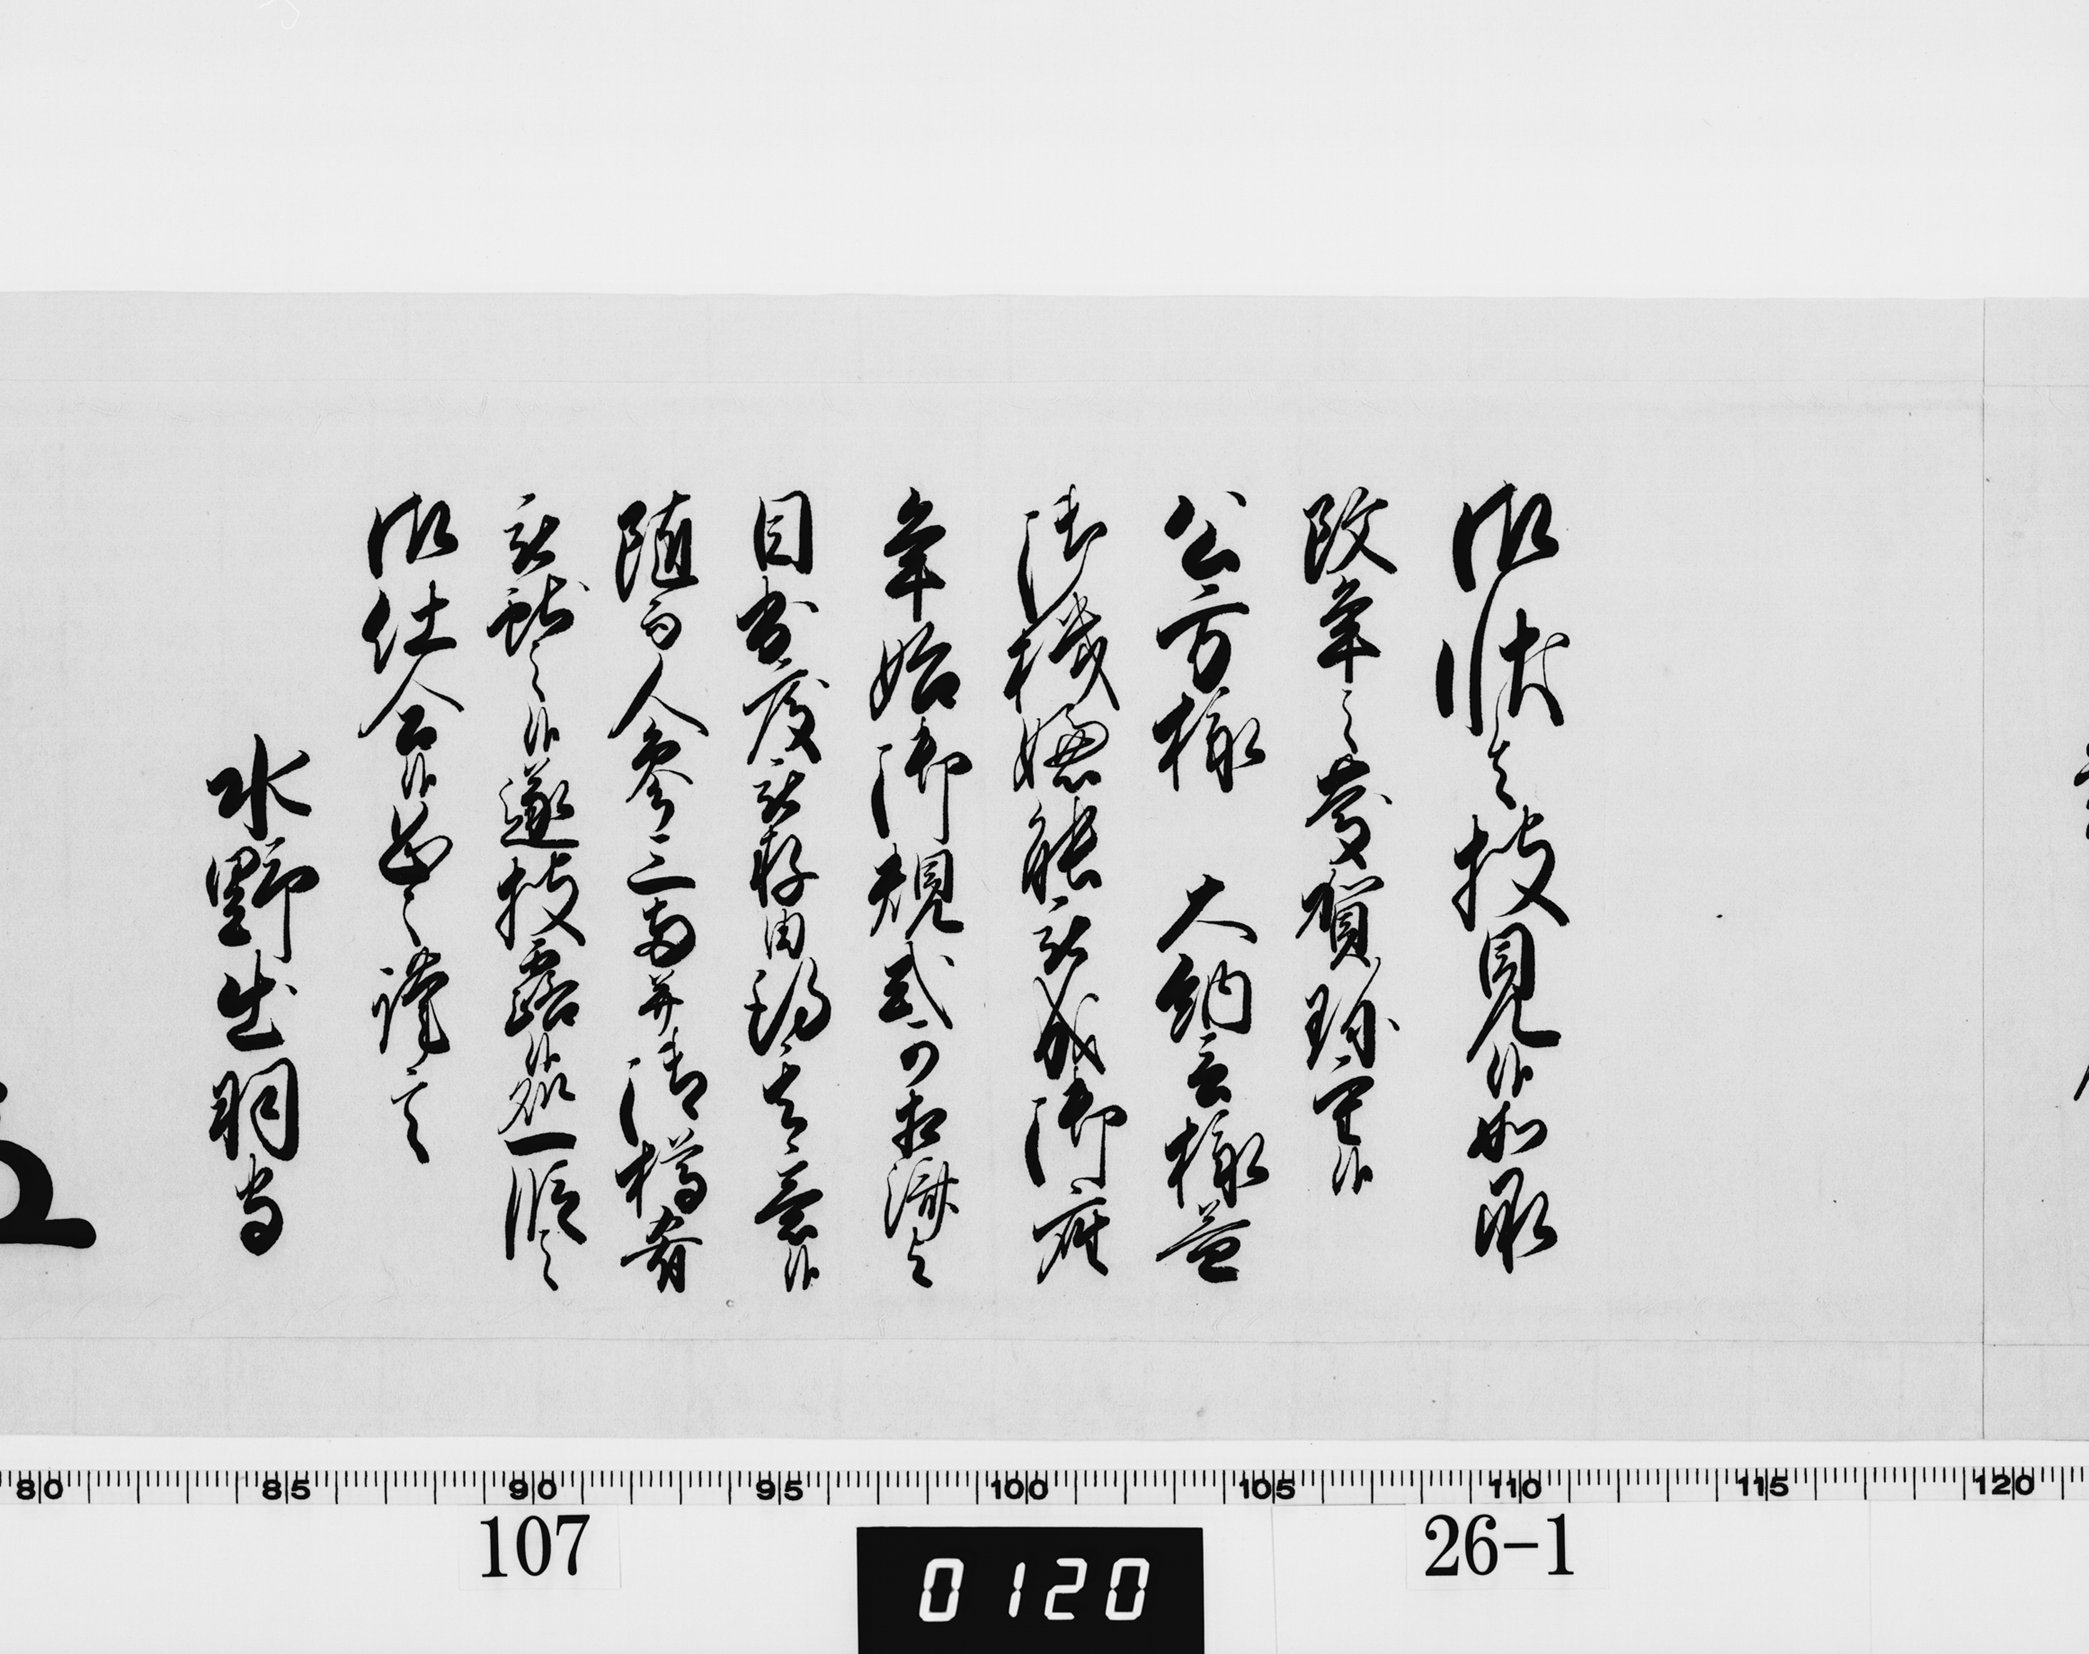 御状令披見候如承
改年之慶賀珍重候
公方様 大納言様益
御機嫌能被成御座
年始御規式可相済と
目出度被存由得其意候
随而人参三両并御樽肴
被献之候遂披露候処一段之
御仕合候恐々謹言
水野出羽守
80 85 90 95 100 105 110 115 120
107
26-1
0120